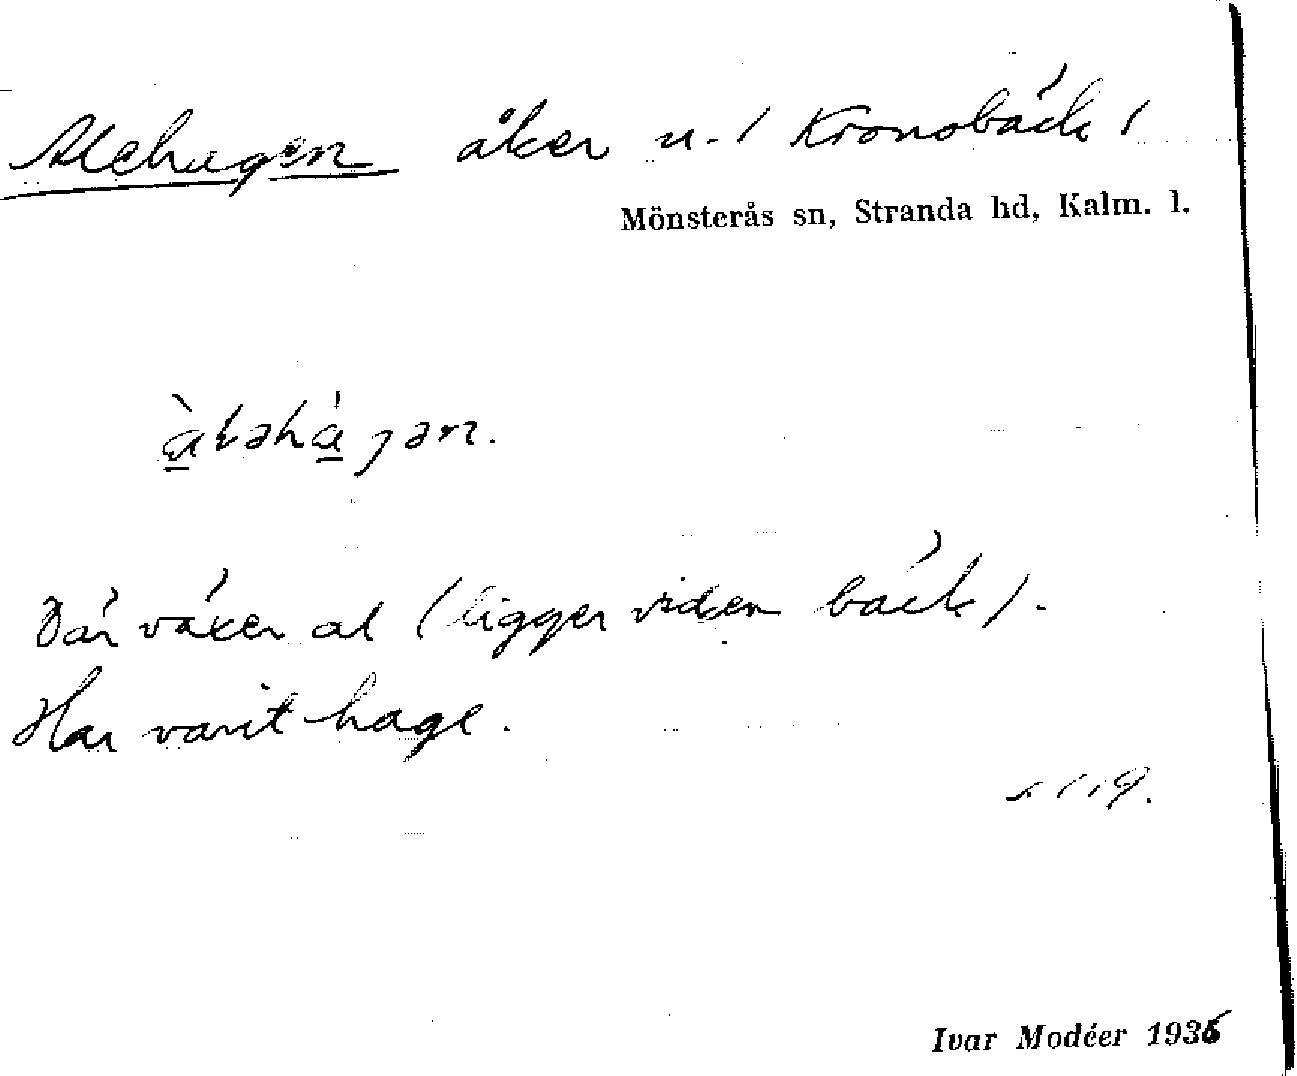 Alehagen åker u. / Kronobäck /
Mönsterås sn, Stranda hd, Kalm. l.
Där växer al (ligger vid en bäck).
Har varit hage.
Ivar Modéer 1936